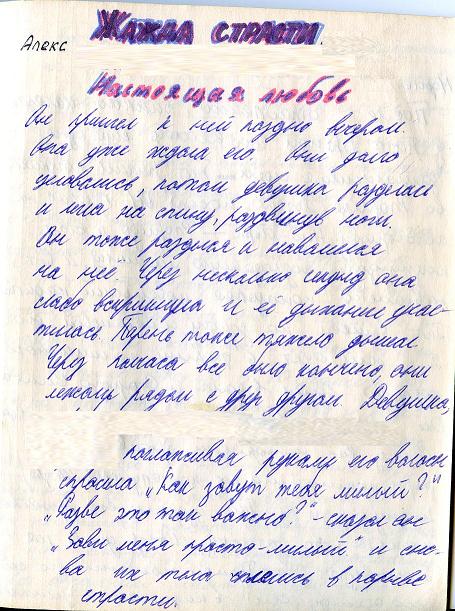 Алекс
ЖАЖДА СТРАСТИ.
Настоящая любовь
Он пришел к ней поздно вечером.
Она уже ждала его. Они долго
целовались, потом девушка разделась
и легла на спину, раздвинув ноги.
Он тоже разделся и навалился
на нее. Через несколько секунд она
слабо вскрикнула и её дыхание учас-
тилось. Парень тоже тяжело дышал
Через полчаса все было кончено, они
лежали рядом с друг другом. Девушка,
поглаживая руками его волосы
спросила „Как зовут тебя милый?"
„Разве это так важно?" - сказал он
„Зови меня просто - милый" и сно-
ва их тела слились в порыве
страсти.